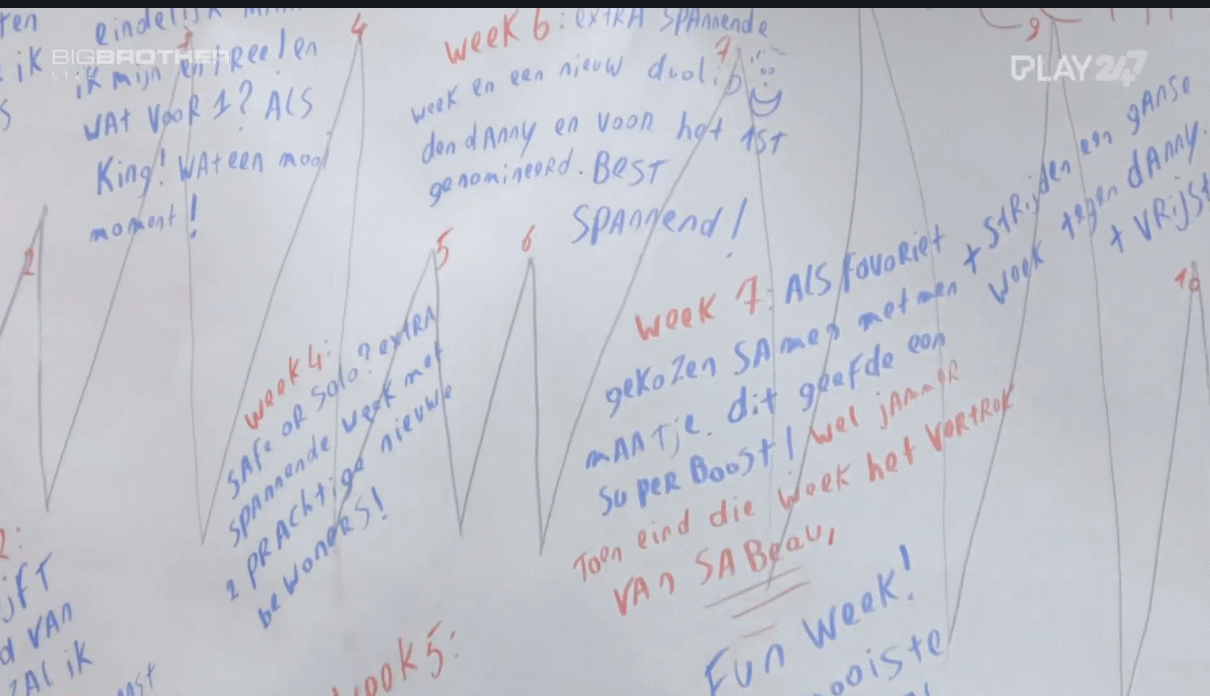 BIGBROTHER
LIVE
PLAY 247
eindelijk
ik mijn entree! en
WAt VOOR 1? ALS
King! WAt een mooi
moment!
ik
2
3
4
5
6
7
9
10
week 6: extRA SPAnnende
week en een nieuw duo! :D
den dAnny en voor het 1ST
genomineerd. BEST
SPAnnend!
week 4:
SAfe oR Solo? extRA
SPAnnende week met
2 PRAChtige nieuwe
bewoneRS!
week 7: ALS fAvoRiet
geKoZen SAmen met men
mAATje. dit geefde een
SupeR BooSt! wel jAmmeR
Toen eind die week het VeRtRoK
VAn SABeau,
+ StRijden een gAnSe
week tegen dAnny.
+ VRijSt
d VAn
ZAL ik
week 5:
Fun week!
ooiste